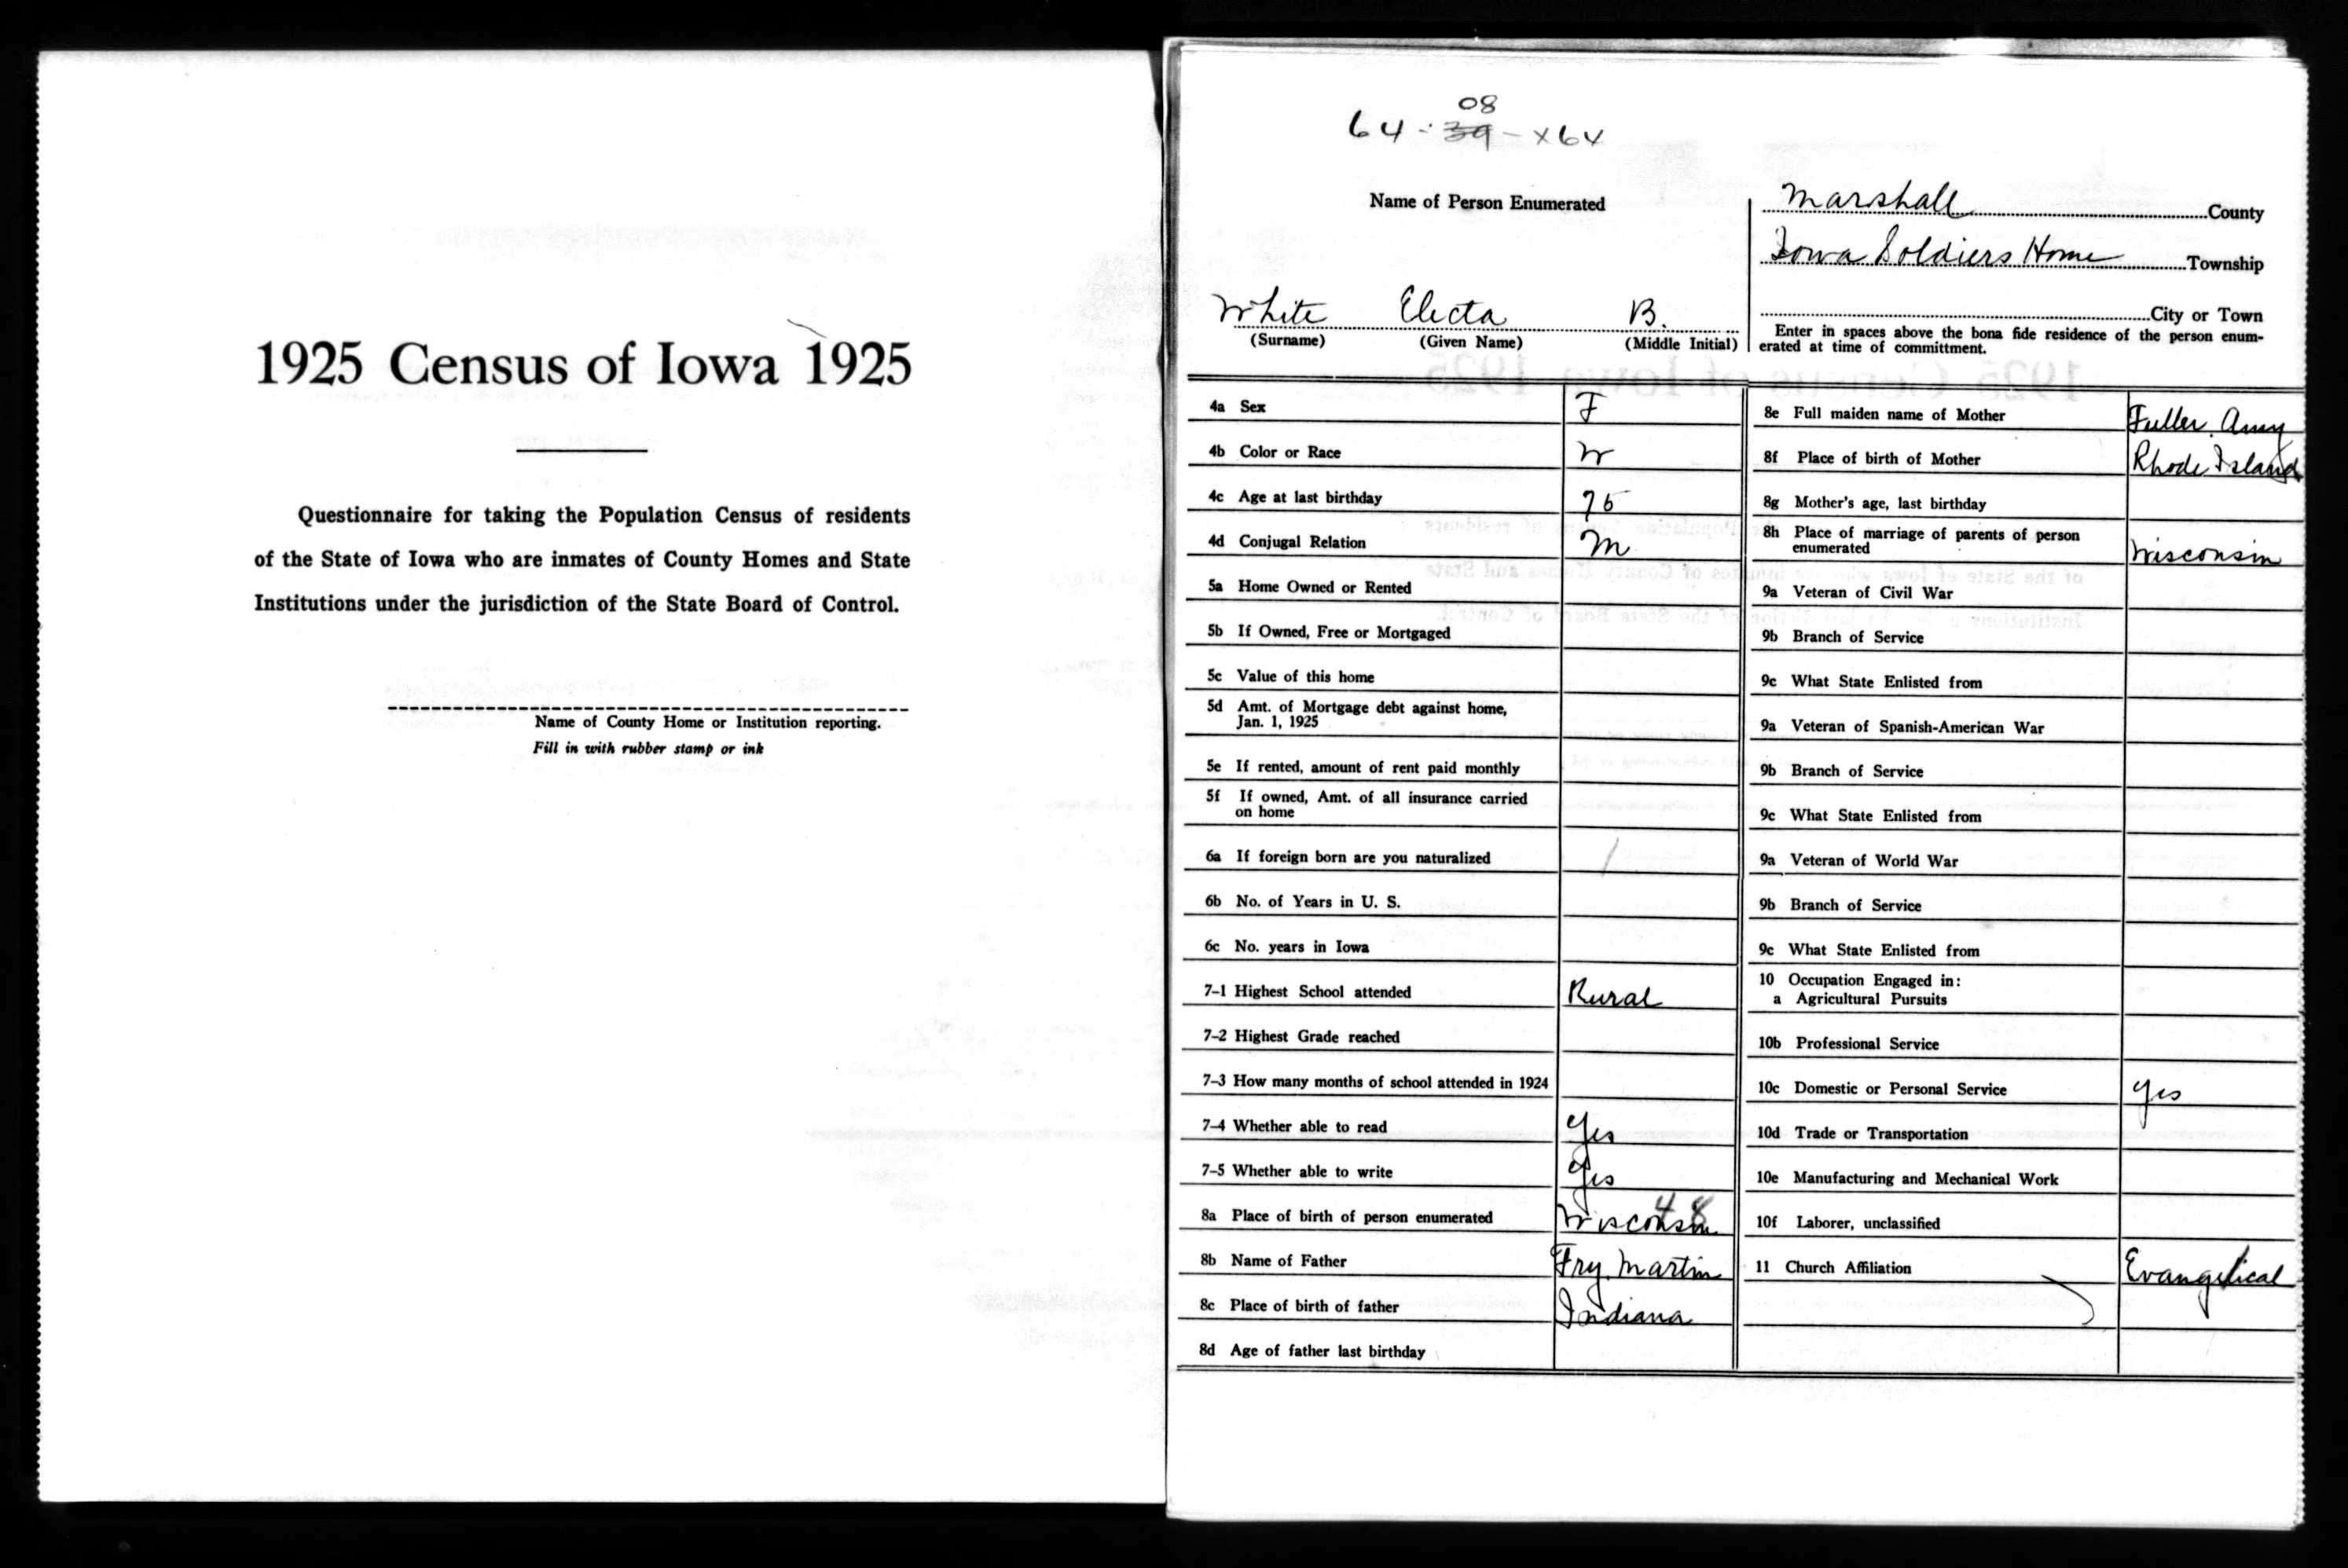 1925 Census of Iowa 1925
Questionnaire for taking the Population Census of residents
of the State of Iowa who are inmates of County Homes and State
Institutions under the jurisdiction of the State Board of Control.
Name of County Home or Institution reporting.
Fill in with rubber stamp or ink
08
64 - 39 - x64
Name of Person Enumerated
Marshall County
Iowa Soldiers Home Township
City or Town
Enter in spaces above the bona fide residence of the person enum-
erated at time of committment.
White Electa B.
(Surname) (Given Name) (Middle Initial)
4a Sex F
4b Color or Race W
4c Age at last birthday 75
4d Conjugal Relation M
5a Home Owned or Rented
5b If Owned, Free or Mortgaged
5c Value of this home
5d Amt. of Mortgage debt against home,
Jan. 1, 1925
5e If rented, amount of rent paid monthly
5f If owned, Amt. of all insurance carried
on home
6a If foreign born are you naturalized /
6b No. of Years in U. S.
6c No. years in Iowa
7-1 Highest School attended Rural
7-2 Highest Grade reached
7-3 How many months of school attended in 1924
7-4 Whether able to read yes
7-5 Whether able to write yes
48
8a Place of birth of person enumerated Wisconsin
8b Name of Father Fry, Martin
8c Place of birth of father Indiana
8d Age of father last birthday
8e Full maiden name of Mother Fuller, Amy
8f Place of birth of Mother Rhode Island
8g Mother's age, last birthday
8h Place of marriage of parents of person
enumerated Wisconsin
9a Veteran of Civil War
9b Branch of Service
9c What State Enlisted from
9a Veteran of Spanish-American War
9b Branch of Service
9c What State Enlisted from
9a Veteran of World War
9b Branch of Service
9c What State Enlisted from
10 Occupation Engaged in:
a Agricultural Pursuits
10b Professional Service
10c Domestic or Personal Service yes
10d Trade or Transportation
10e Manufacturing and Mechanical Work
10f Laborer, unclassified
11 Church Affiliation Evangelical